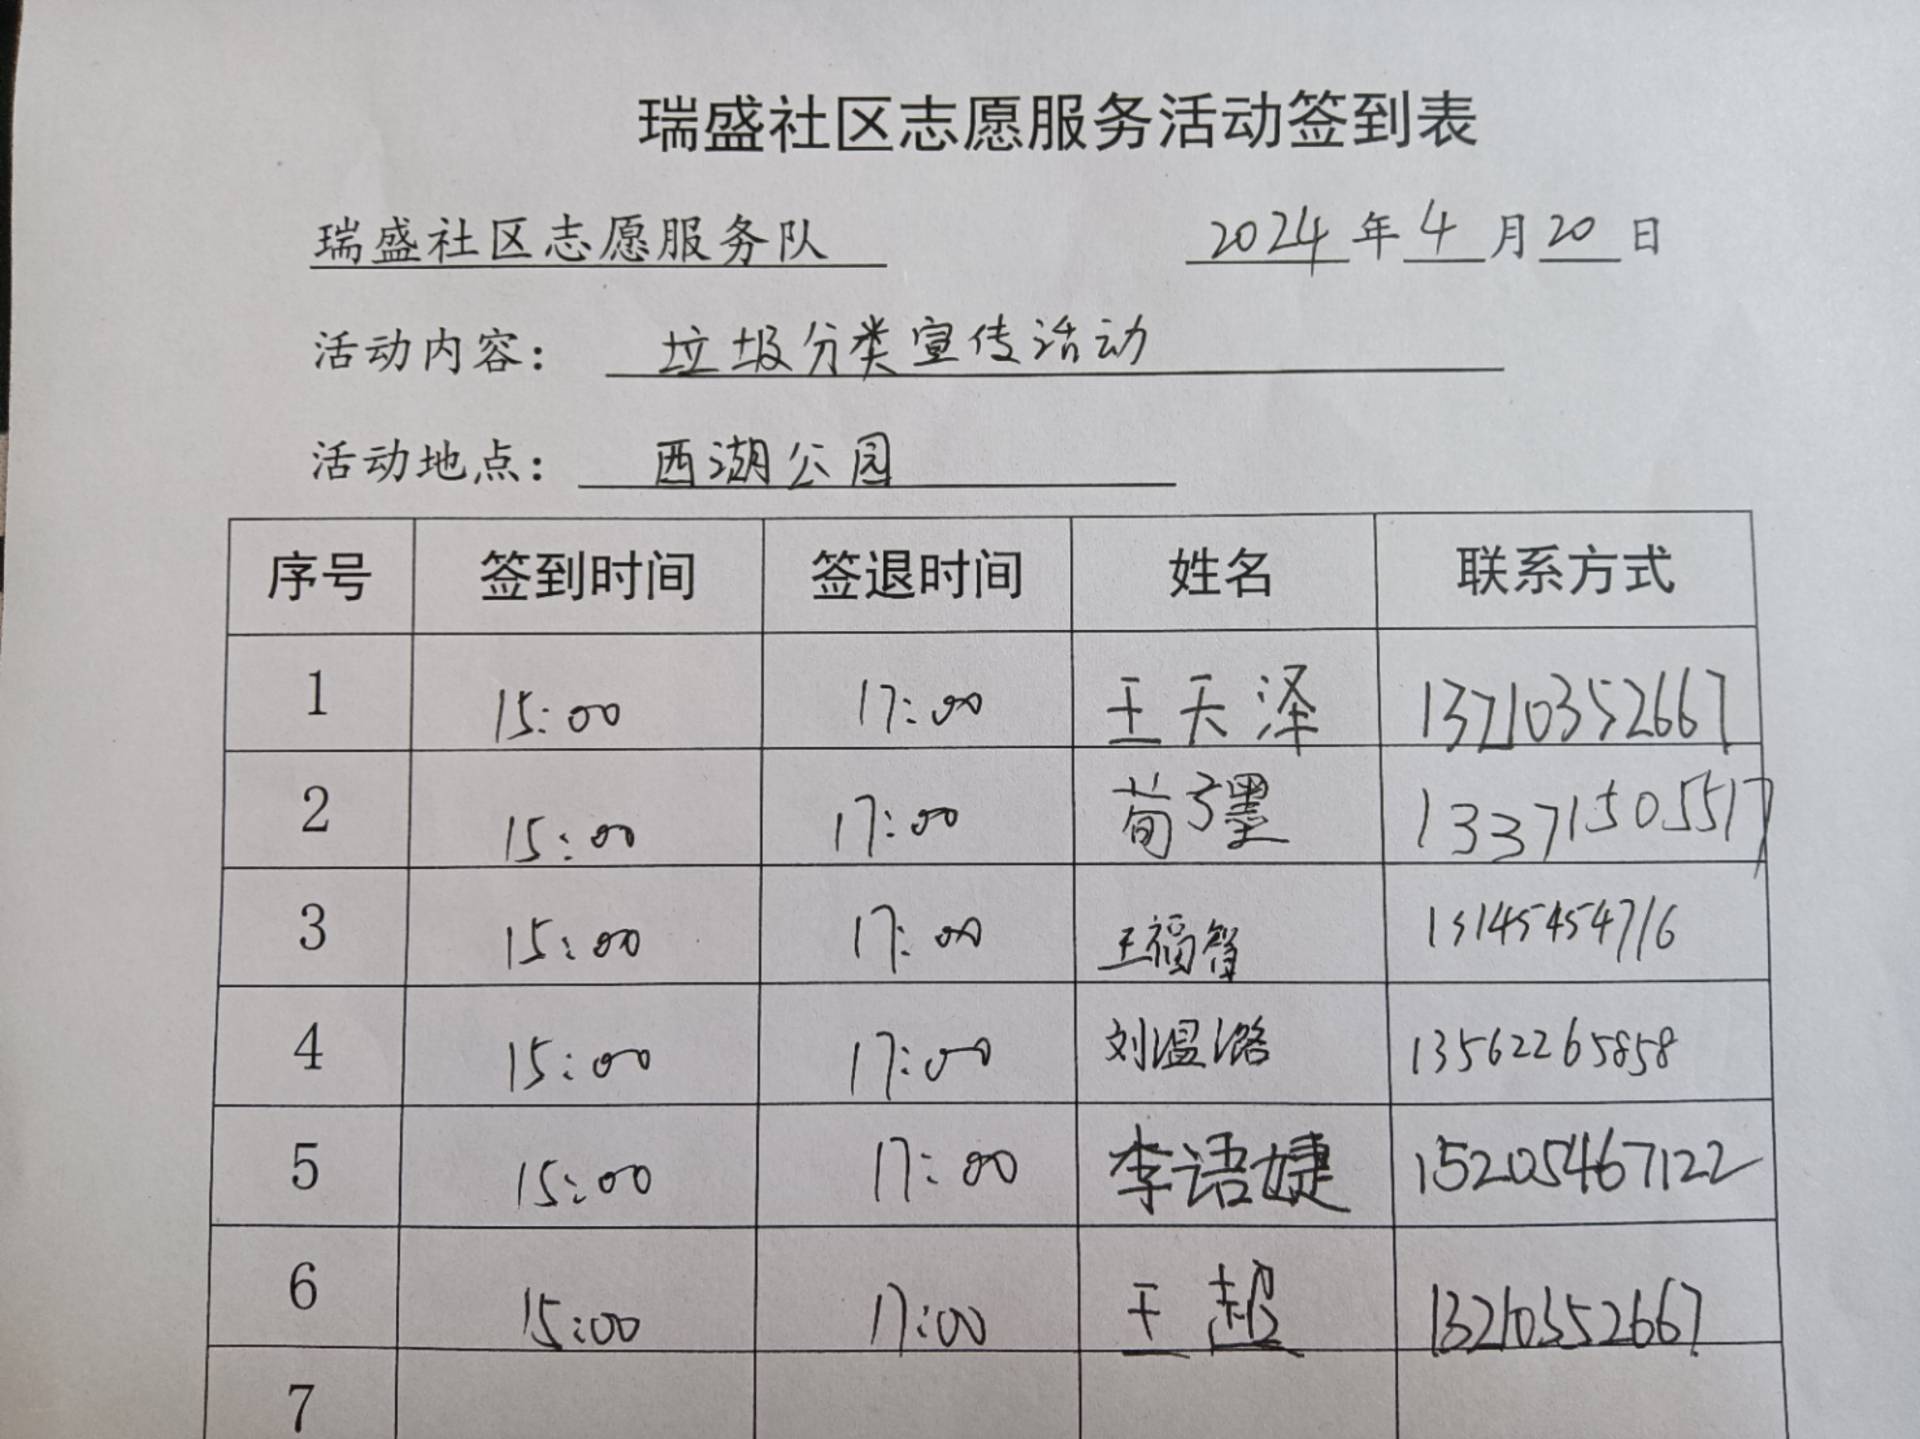 瑞盛社区志愿服务活动签到表
瑞盛社区志愿服务队 2024年4月20日
活动内容: 垃圾分类宣传活动
活动地点: 西湖公园
序号 签到时间 签退时间 姓名 联系方式
1 15:00 17:00 王天泽 13210352667
2 15:00 17:00 荀子墨 13371505517
3 15:00 17:00 王福智 13145454716
4 15:00 17:00 刘温潞 13562265858
5 15:00 17:00 李语婕 15205467122
6 15:00 17:00 王超 13210352667
7